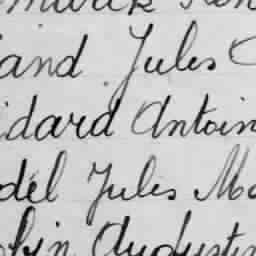 and Jules
dard Antoin
del Jules Ma
bin Augustin